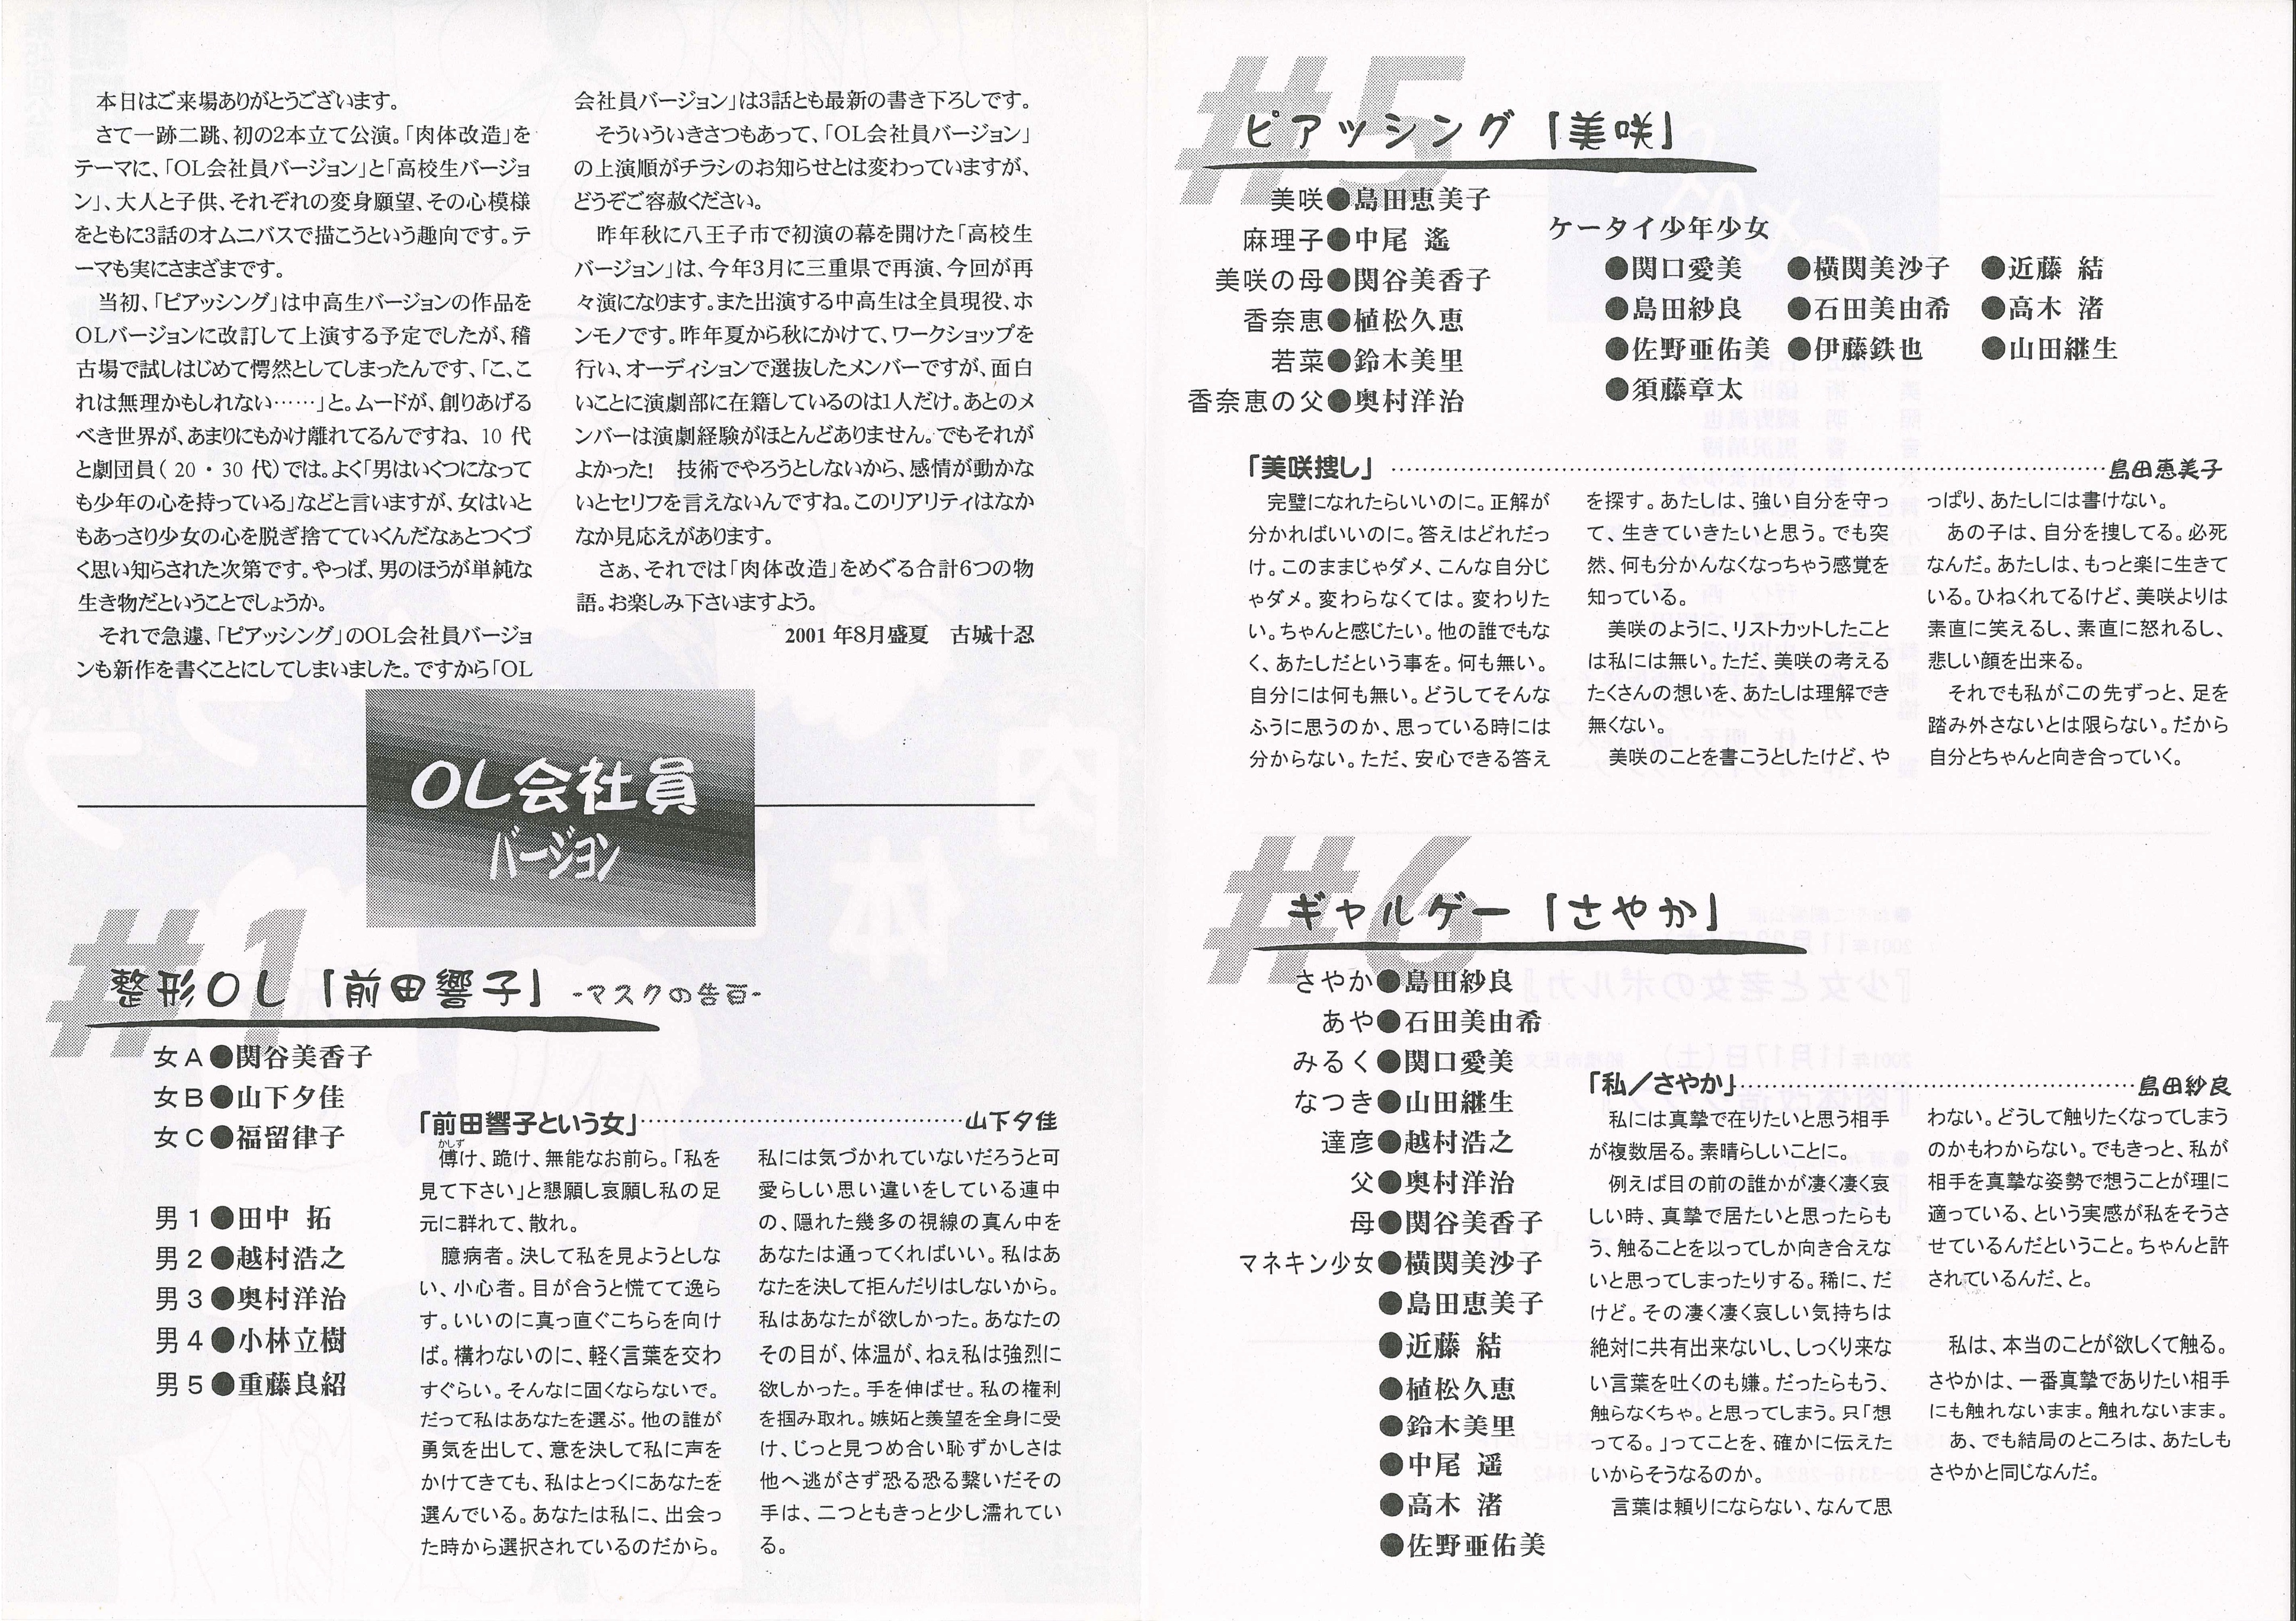 本日はご来場ありがとうございます。
さて一跡二跳、初の2本立て公演。「肉体改造」を
テーマに、「OL会社員バージョン」と「高校生バージョ
ン」、大人と子供、それぞれの変身願望、その心模様
をともに3話のオムニバスで描こうという趣向です。テ
ーマも実にさまざまです。
当初、「ピアッシング」は中高生バージョンの作品を
OLバージョンに改訂して上演する予定でしたが、稽
古場で試しはじめて愕然としてしまったんです、「こ、こ
れは無理かもしれない……」と。ムードが、創りあげる
べき世界が、あまりにもかけ離れてるんですね、10 代
と劇団員( 20・30 代)では。よく「男はいくつになって
も少年の心を持っている」などと言いますが、女はいと
もあっさり少女の心を脱ぎ捨てていくんだなぁとつくづ
く思い知らされた次第です。やっぱ、男のほうが単純な
生き物だということでしょうか。
それで急遽、「ピアッシング」のOL会社員バージョ
ンも新作を書くことにしてしまいました。ですから「OL
会社員バージョン」は3話とも最新の書き下ろしです。
そういういきさつもあって、「OL会社員バージョン」
の上演順がチラシのお知らせとは変わっていますが、
どうぞご容赦ください。
昨年秋に八王子市で初演の幕を開けた「高校生
バージョン」は、今年3月に三重県で再演、今回が再
々演になります。また出演する中高生は全員現役、ホ
ンモノです。昨年夏から秋にかけて、ワークショップを
行い、オーディションで選抜したメンバーですが、面白
いことに演劇部に在籍しているのは1人だけ。あとのメ
ンバーは演劇経験がほとんどありません。でもそれが
よかった! 技術でやろうとしないから、感情が動かな
いとセリフを言えないんですね。このリアリティはなか
なか見応えがあります。
さぁ、それでは「肉体改造」をめぐる合計6つの物
語。お楽しみ下さいますよう。
2001 年8月盛夏 古城十忍
OL会社員
バージョン
#1
整形OL「前田響子」-マスクの告白-
女A●関谷美香子
女B●山下夕佳
女C●福留律子
男1●田中 拓
男2●越村浩之
男3●奥村洋治
男4●小林立樹
男5●重藤良紹
「前田響子という女」……………………………山下夕佳
かしず
傅け、跪け、無能なお前ら。「私を
見て下さい」と懇願し哀願し私の足
元に群れて、散れ。
臆病者。決して私を見ようとしな
い、小心者。目が合うと慌てて逸ら
す。いいのに真っ直ぐこちらを向け
ば。構わないのに、軽く言葉を交わ
すぐらい。そんなに固くならないで。
だって私はあなたを選ぶ。他の誰が
勇気を出して、意を決して私に声を
かけてきても、私はとっくにあなたを
選んでいる。あなたは私に、出会っ
た時から選択されているのだから。
私には気づかれていないだろうと可
愛らしい思い違いをしている連中
の、隠れた幾多の視線の真ん中を
あなたは通ってくればいい。私はあ
なたを決して拒んだりはしないから。
私はあなたが欲しかった。あなたの
その目が、体温が、ねぇ私は強烈に
欲しかった。手を伸ばせ。私の権利
を掴み取れ。嫉妬と羨望を全身に受
け、じっと見つめ合い恥ずかしさは
他へ逃がさず恐る恐る繋いだその
手は、二つともきっと少し濡れてい
る。
#5
ピアッシング「美咲」
美咲●島田恵美子
麻理子●中尾 遙
美咲の母●関谷美香子
香奈恵●植松久恵
若菜●鈴木美里
香奈恵の父●奥村洋治
ケータイ少年少女
●関口愛美 ●横関美沙子 ●近藤 結
●島田紗良 ●石田美由希 ●高木 渚
●佐野亜佑美 ●伊藤鉄也 ●山田継生
●須藤章太
「美咲捜し」……………………………島田恵美子
完璧になれたらいいのに。正解が
分かればいいのに。答えはどれだっ
け。このままじゃダメ、こんな自分じ
ゃダメ。変わらなくては。変わりた
い。ちゃんと感じたい。他の誰でもな
く、あたしだという事を。何も無い。
自分には何も無い。どうしてそんな
ふうに思うのか、思っている時には
分からない。ただ、安心できる答え
を探す。あたしは、強い自分を守っ
て、生きていきたいと思う。でも突
然、何も分かんなくなっちゃう感覚を
知っている。
美咲のように、リストカットしたこと
は私には無い。ただ、美咲の考える
たくさんの想いを、あたしは理解でき
無くない。
美咲のことを書こうとしたけど、や
っぱり、あたしには書けない。
あの子は、自分を捜してる。必死
なんだ。あたしは、もっと楽に生きて
いる。ひねくれてるけど、美咲よりは
素直に笑えるし、素直に怒れるし、
悲しい顔を出来る。
それでも私がこの先ずっと、足を
踏み外さないとは限らない。だから
自分とちゃんと向き合っていく。
#6
ギャルゲー「さやか」
さやか●島田紗良
あや●石田美由希
みるく●関口愛美
なつき●山田継生
達彦●越村浩之
父●奥村洋治
母●関谷美香子
マネキン少女●横関美沙子
●島田恵美子
●近藤 結
●植松久恵
●鈴木美里
●中尾 遥
●高木 渚
●佐野亜佑美
「私／さやか」……………………………島田紗良
私には真摯で在りたいと思う相手
が複数居る。素晴らしいことに。
例えば目の前の誰かが凄く凄く哀
しい時、真摯で居たいと思ったらも
う、触ることを以ってしか向き合えな
いと思ってしまったりする。稀に、だ
けど。その凄く凄く哀しい気持ちは
絶対に共有出来ないし、しっくり来な
い言葉を吐くのも嫌。だったらもう、
触らなくちゃ。と思ってしまう。只「想
ってる。」ってことを、確かに伝えた
いからそうなるのか。
言葉は頼りにならない、なんて思
わない。どうして触りたくなってしまう
のかもわからない。でもきっと、私が
相手を真摯な姿勢で想うことが理に
適っている、という実感が私をそうさ
せているんだということ。ちゃんと許
されているんだ、と。
私は、本当のことが欲しくて触る。
さやかは、一番真摯でありたい相手
にも触れないまま。触れないまま。
あ、でも結局のところは、あたしも
さやかと同じなんだ。